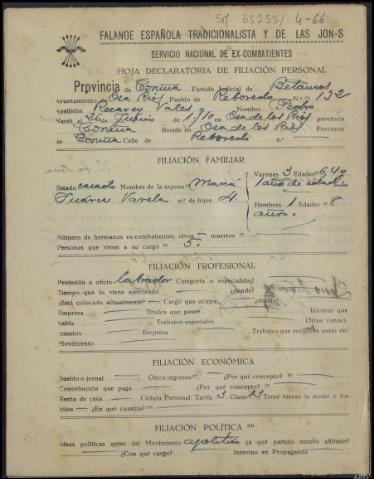 65255/4-66
FALANGE ESPAÑOLA TRADICIONALISTA Y DE LAS JON-S
SERVICIO NACIONAL DE EX-COMBATIENTES
HOJA DECLARATORIA DE FILIACIÓN PERSONAL
Provincia de Coruña Partido Judicial de Betanzos
Ayuntamiento Oza Rios Pueblo de Reboredo N.º 132
Apellidos Recarey Vales Nombre Pedro
Nació el 26 de Junio de 1910 en Oza de los Rios provincia
Coruña Reside en Oza de los Rios Provincia
Coruña Calle de Reboredo n.º
FILIACIÓN FAMILIAR
Varones 3 Edades 6, 4 y
1 año de edad
Estado casado Nombre de la esposa María
Suarez Varela n.º de hijos 4.
Hembras 1 Edades 8
años.
Número de hermanos ex-combatientes; vivos — muertos —
Personas que viven a su cargo 5.
FILIACIÓN PROFESIONAL
Profesión u oficio labrador Categoría o especialidad
Tiempo que lo viene ejerciendo ¿dónde?
¿Está colocado actualmente? — Cargo que ocupa ¿dónde?
Empresa — Títulos que posee Idiomas que
habla — Trabajos especiales Otros conoci-
mientos Empresa Trabajos que realizaba antes del
Movimiento
FILIACIÓN ECONÓMICA
Sueldo o jornal — Otros ingresos — ¿Por qué concepto? —
Contribución que paga — ¿Por qué concepto? —
Renta de casa — Cédula Personal Tarifa 3 Clase 13 Tiene bienes la mujer o los
hijos — ¿En qué cuantía? —
FILIACIÓN POLÍTICA
Ideas políticas antes del Movimiento apolítico ¿a qué partido estuvo afiliado?
¿Con qué cargo? Intervino en Propaganda